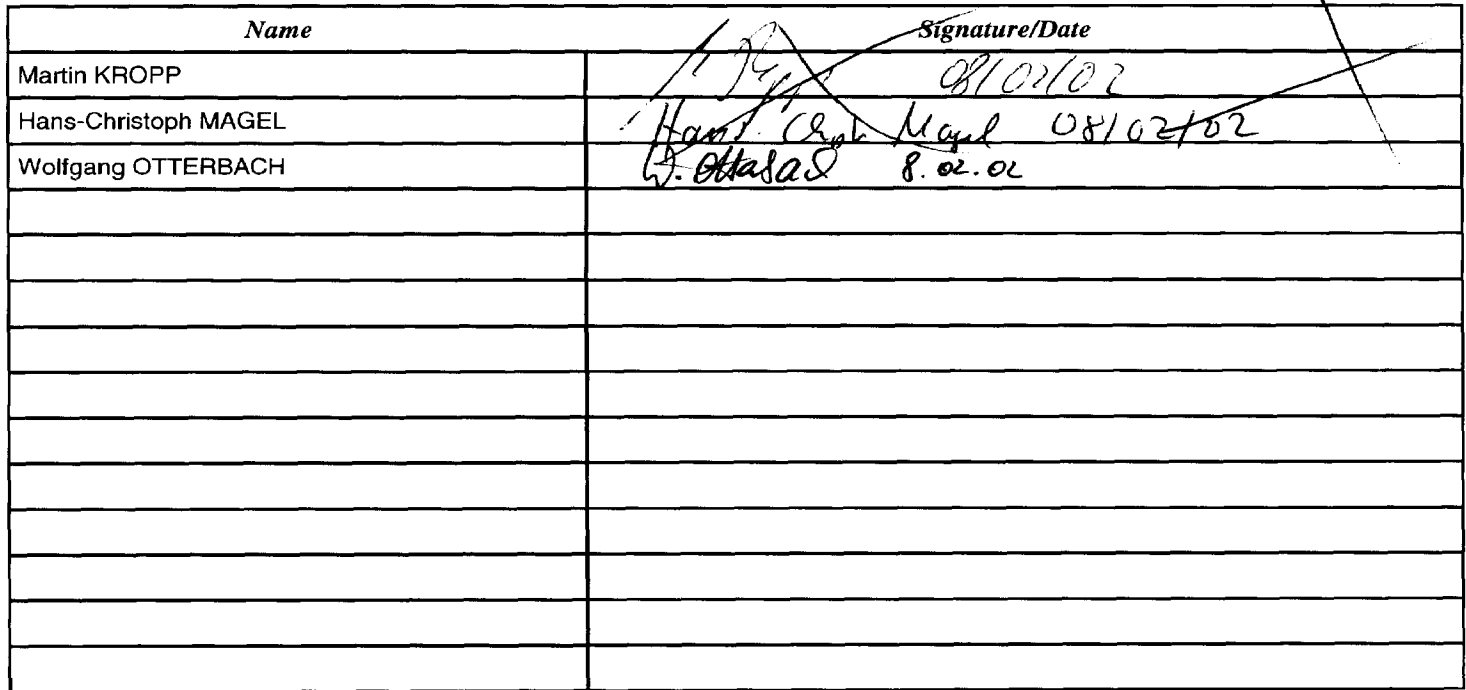 Name Signature/Date
Martin KROPP 08/02/02
Hans-Christoph MAGEL Hans-Chph Magel 08/02/02
Wolfgang OTTERBACH W. 8.02.02